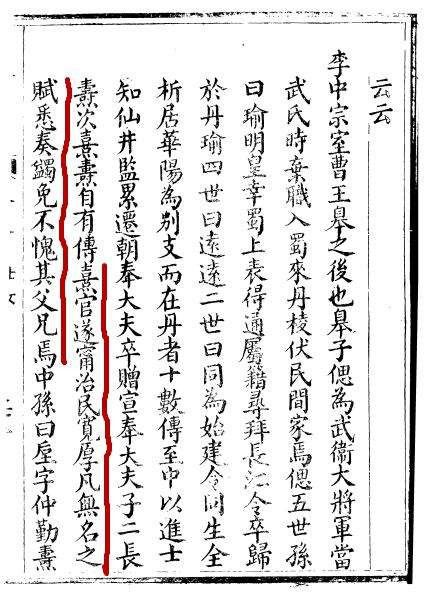 云云
李中宗室曹王皋之後也皋子偲為武衞大將軍當
武氏時棄職入蜀來丹棱伏民間家焉偲五世孫
曰瑜明皇幸蜀上表得通屬籍尋拜長江令卒歸
於丹瑜四世曰遠遠二世曰同為始建令同生全
析居華陽為别支而在丹者十數傳至中以進士
知仙井監累遷朝奉大夫卒贈宣奉大夫子二長
燾次熹燾自有傳熹官遂甯治民寬厚凡無名之
賦悉奏蠲免不愧其父兄焉中孫曰垕字仲勤燾